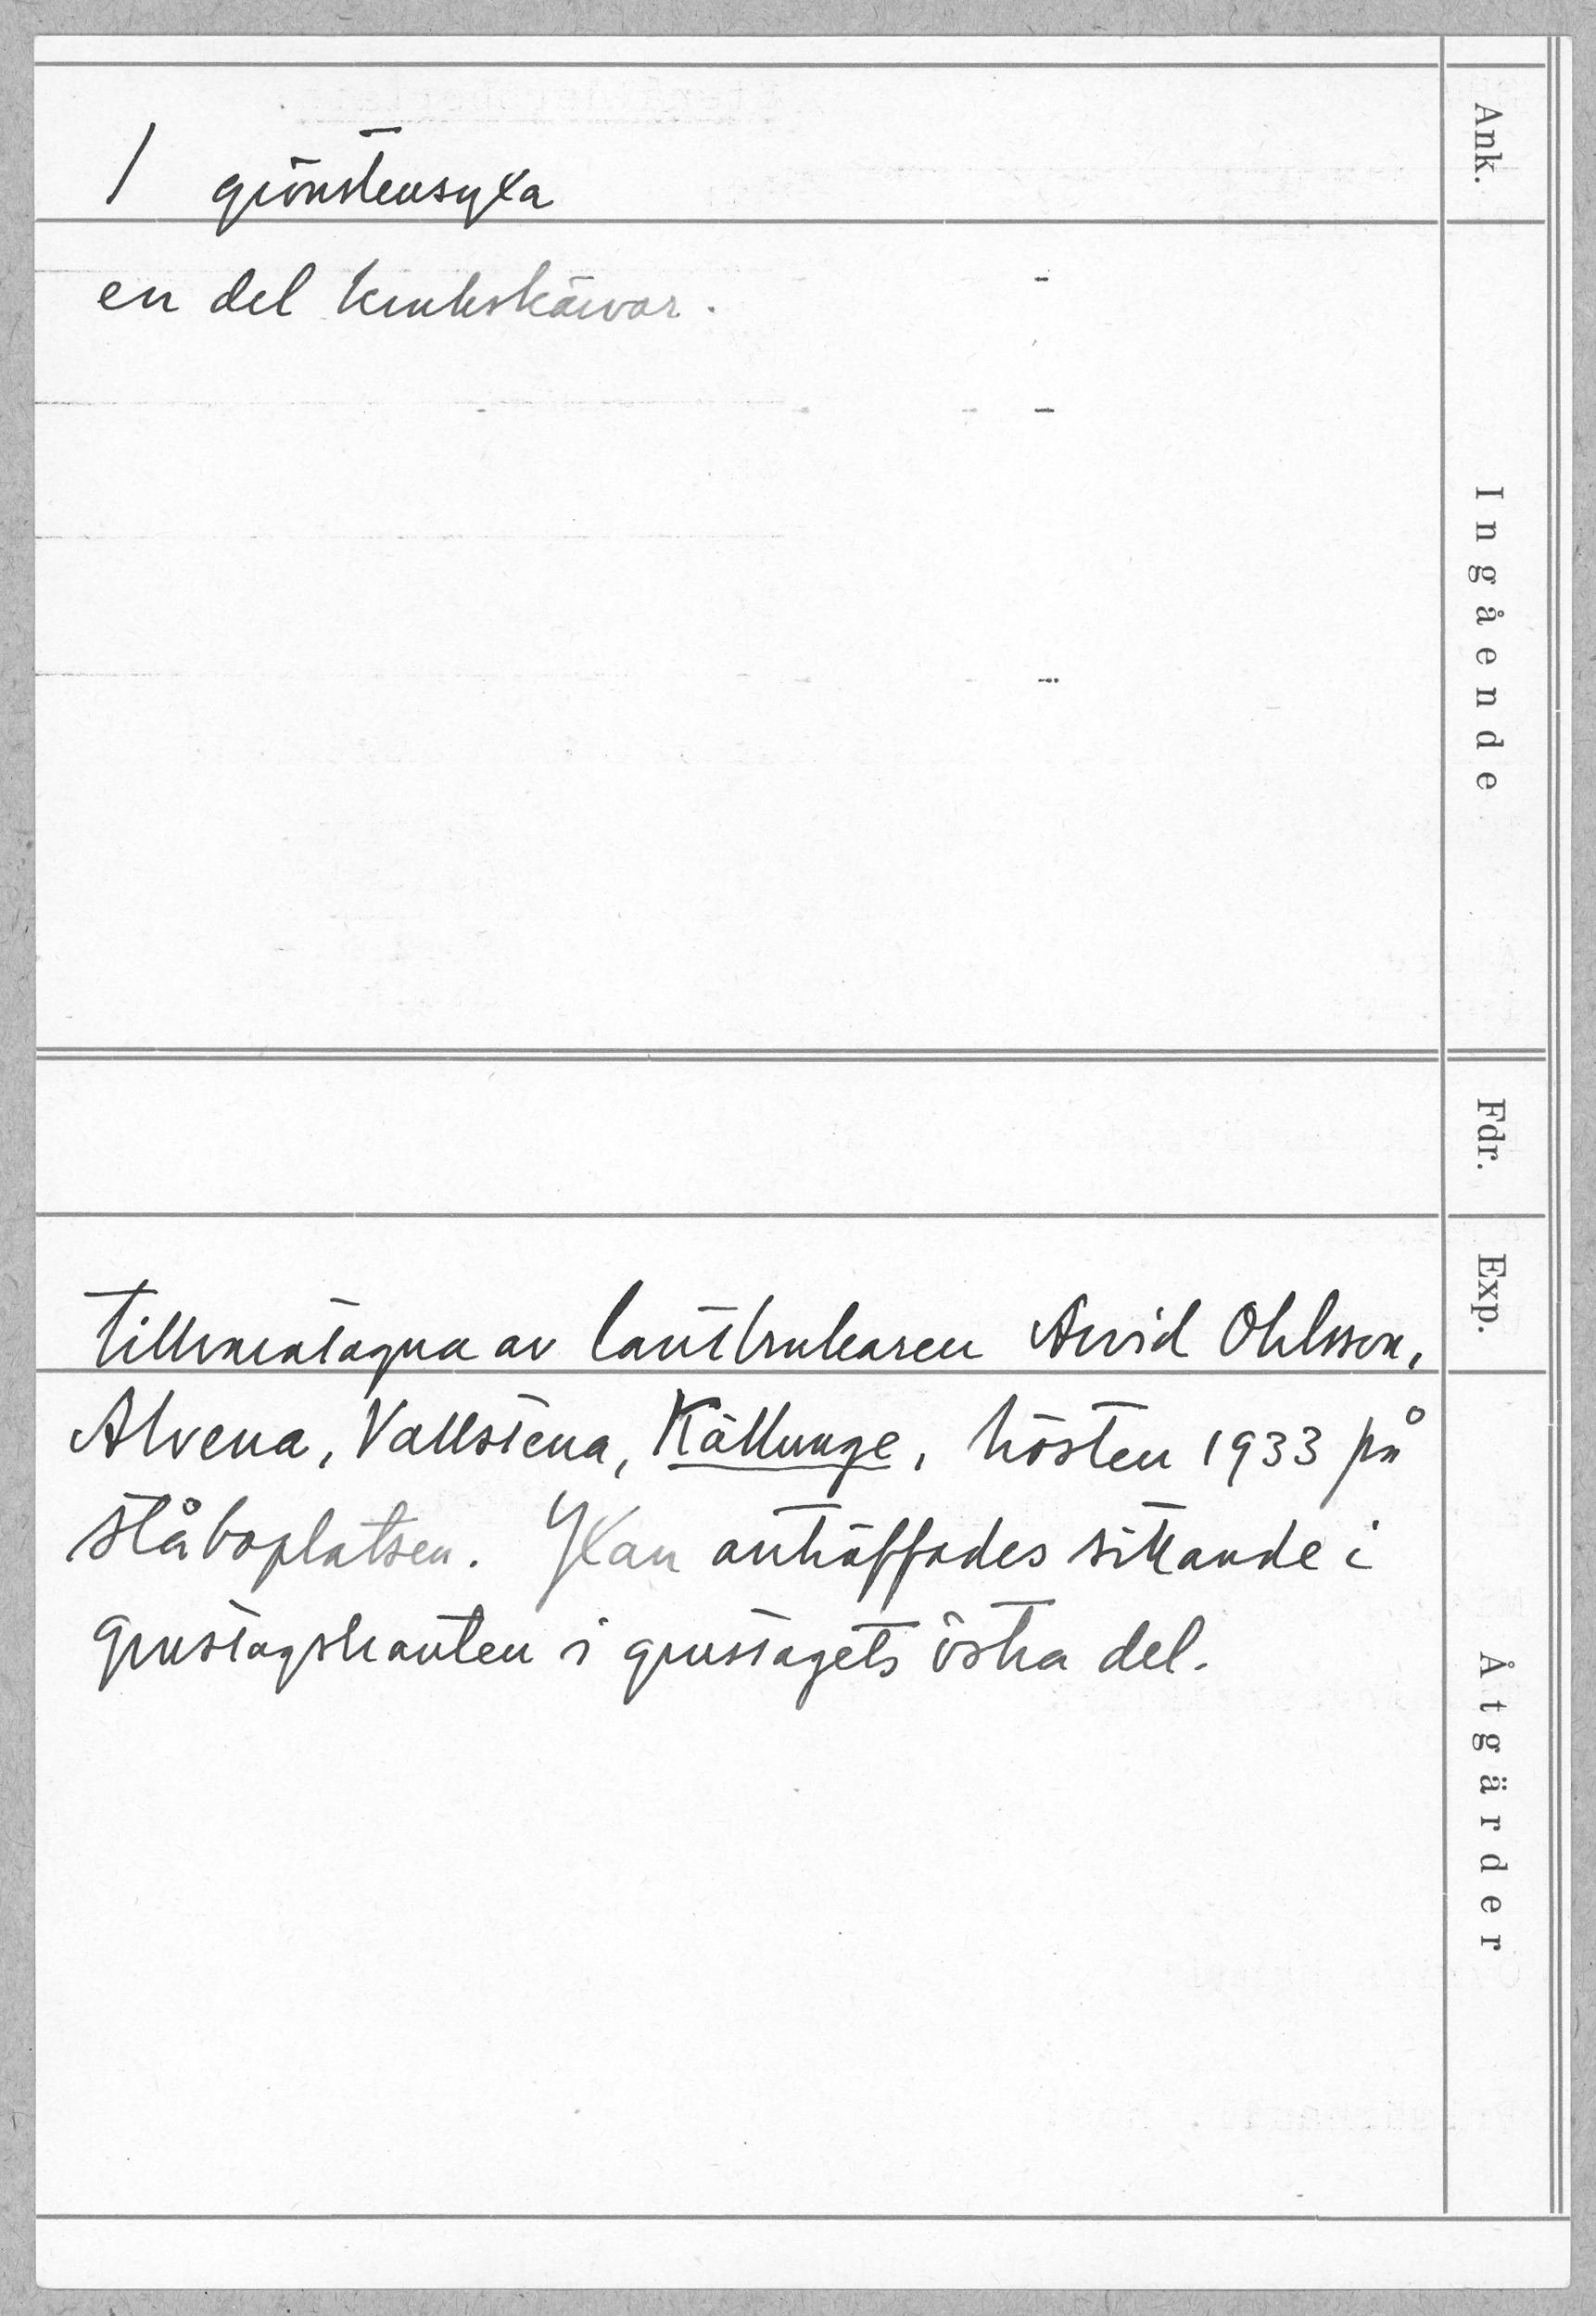 Ank.
1 grönstensyxa
en del krukskärvor.
Ingående
Fdr.
Exp.
tillvaratagna av lantbrukaren Arvid Ohlsson,
Alvena, Vallstena, Källunge, hösten 1933 på
ståboplatsen. Yxan anträffades sittande i
grustagskanten i grustagets östra del.
Åtgärder